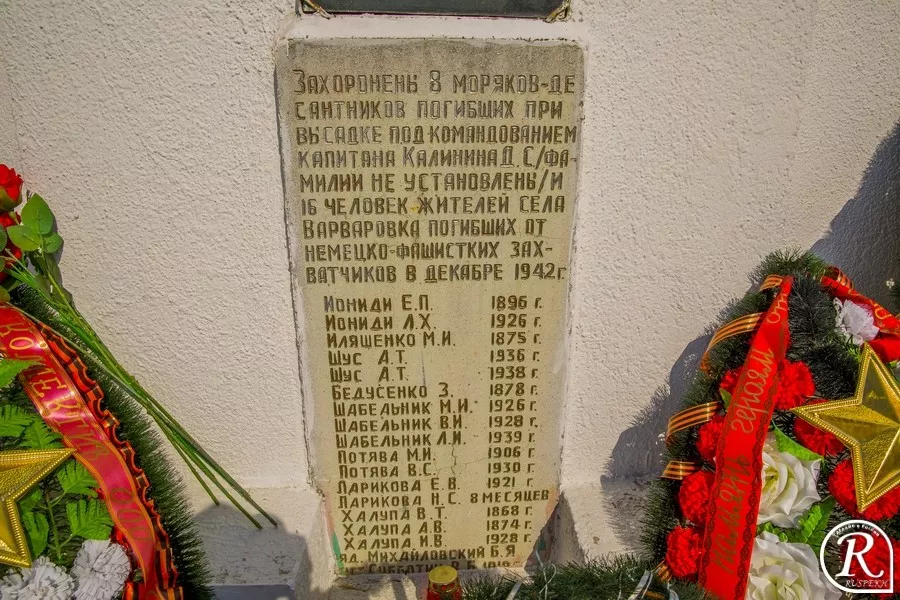 ЗАХОРОНЕНЫ 8 МОРЯКОВ-ДЕ
САНТНИКОВ ПОГИБШИХ ПРИ
ВЫСАДКЕ ПОД КОМАНДОВАНИЕМ
КАПИТАНА КАЛИНИНА Д. С/ФА-
МИЛИИ НЕ УСТАНОВЛЕНЫ/И
16 ЧЕЛОВЕК ЖИТЕЛЕЙ СЕЛА
ВАРВАРОВКА ПОГИБШИХ ОТ
НЕМЕЦКО-ФАШИСТКИХ ЗАХ-
ВАТЧИКОВ В ДЕКАБРЕ 1942 г.
ИОНИДИ Е.П. 1896 г.
ИОНИДИ Л.Х. 1926 г.
ИЛЯЩЕНКО М.И. 1875 г.
ШУС А.Т. 1936 г.
ШУС А.Т. 1938 г.
БЕДУСЕНКО З. 1878 г.
ШАБЕЛЬНИК М.И. 1926 г.
ШАБЕЛЬНИК В.И. 1928 г.
ШАБЕЛЬНИК Л.И. 1939 г.
ПОТЯВА М.И. 1906 г.
ПОТЯВА В.С. 1930 г.
ЛАРИКОВА Е.В. 1921 г.
ЛАРИКОВА Н.С. 8 МЕСЯЦЕВ
ХАЛУПА В.Т. 1868 г.
ХАЛУПА А.В. 1874 г.
ХАЛУПА И.В. 1928 г.
РЯД. МИХАЙЛОВСКИЙ Б.Я
СУББОТИН В.Б.
павшим героям от
R
RUSPEKH